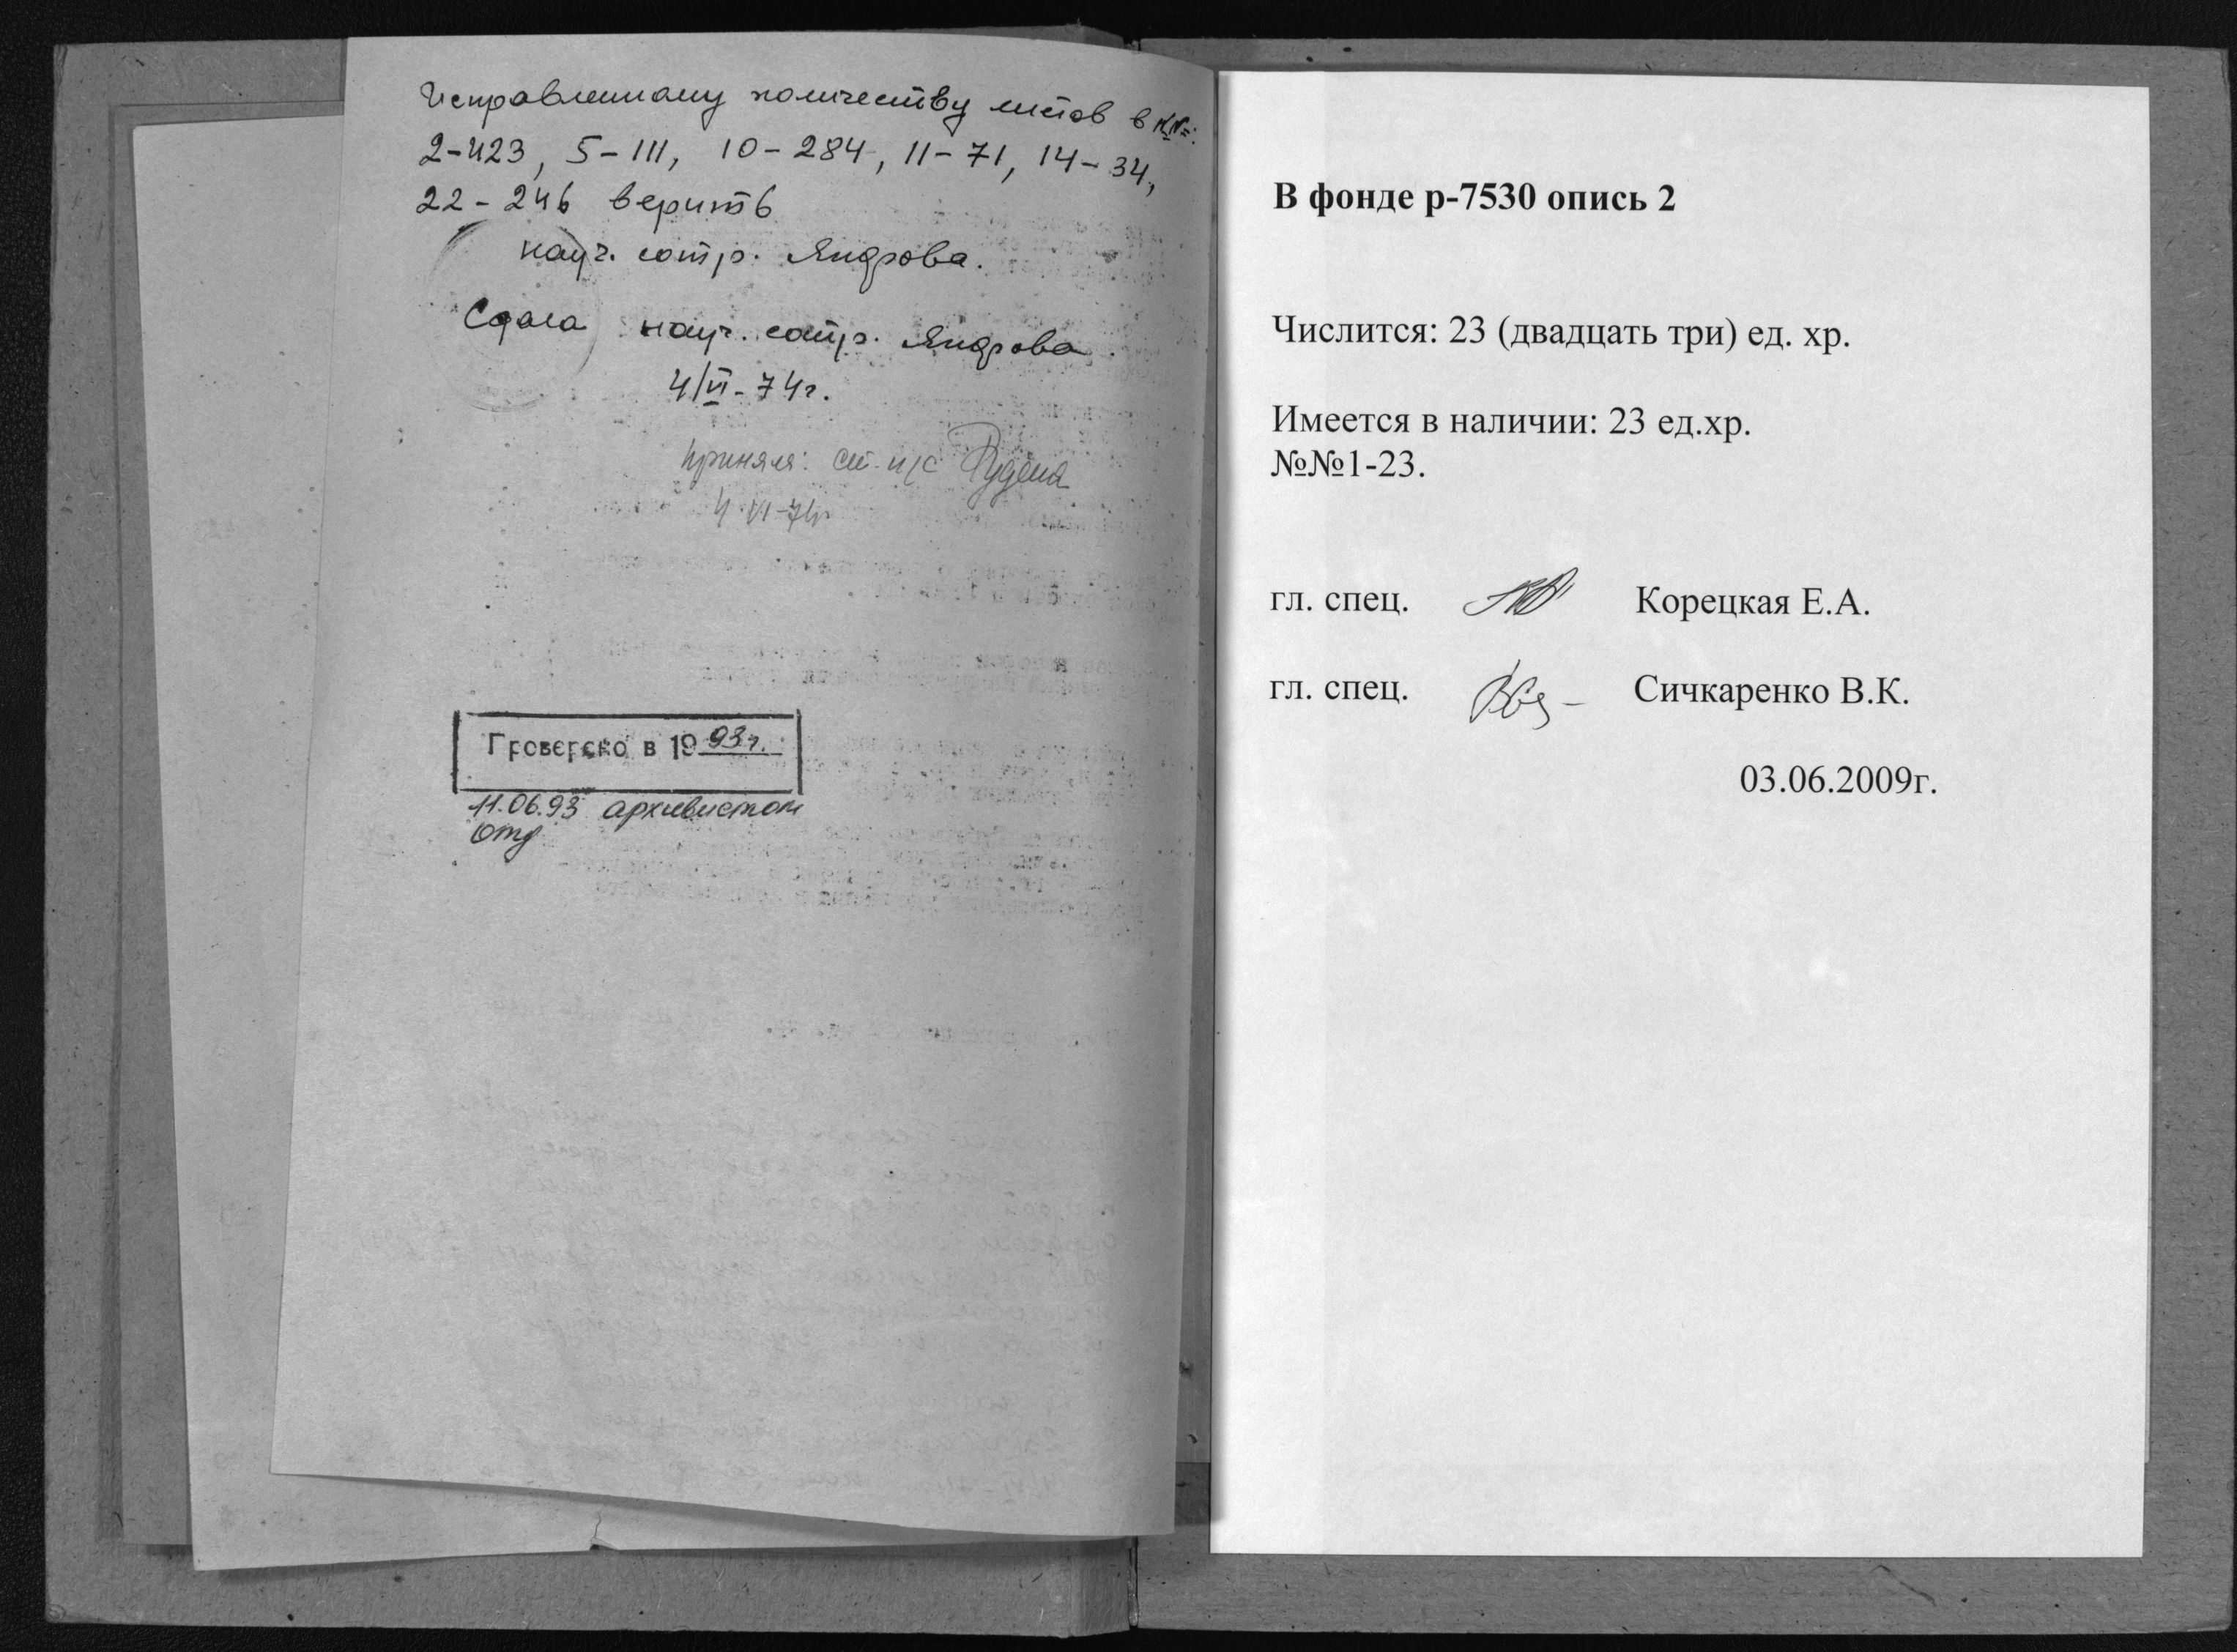 Исправленному количеству листов в №№:
2-423, 5-111, 10-284, 11-71, 14-34,
22-246 верить
науч. сотр. Яндрова.
Сдала науч. сотр. Яндрова.
4/VI-74г.
Приняла: ст. н/с
4 VI-74г
Проверено в 1993г.
11.06.93 архивистом
Отд
В фонде р-7530 опись 2
Числится: 23 (двадцать три) ед. хр.
Имеется в наличии: 23 ед.хр.
№№1-23.
гл. спец. Корецкая Е.А.
гл. спец. Сичкаренко В.К.
03.06.2009г.